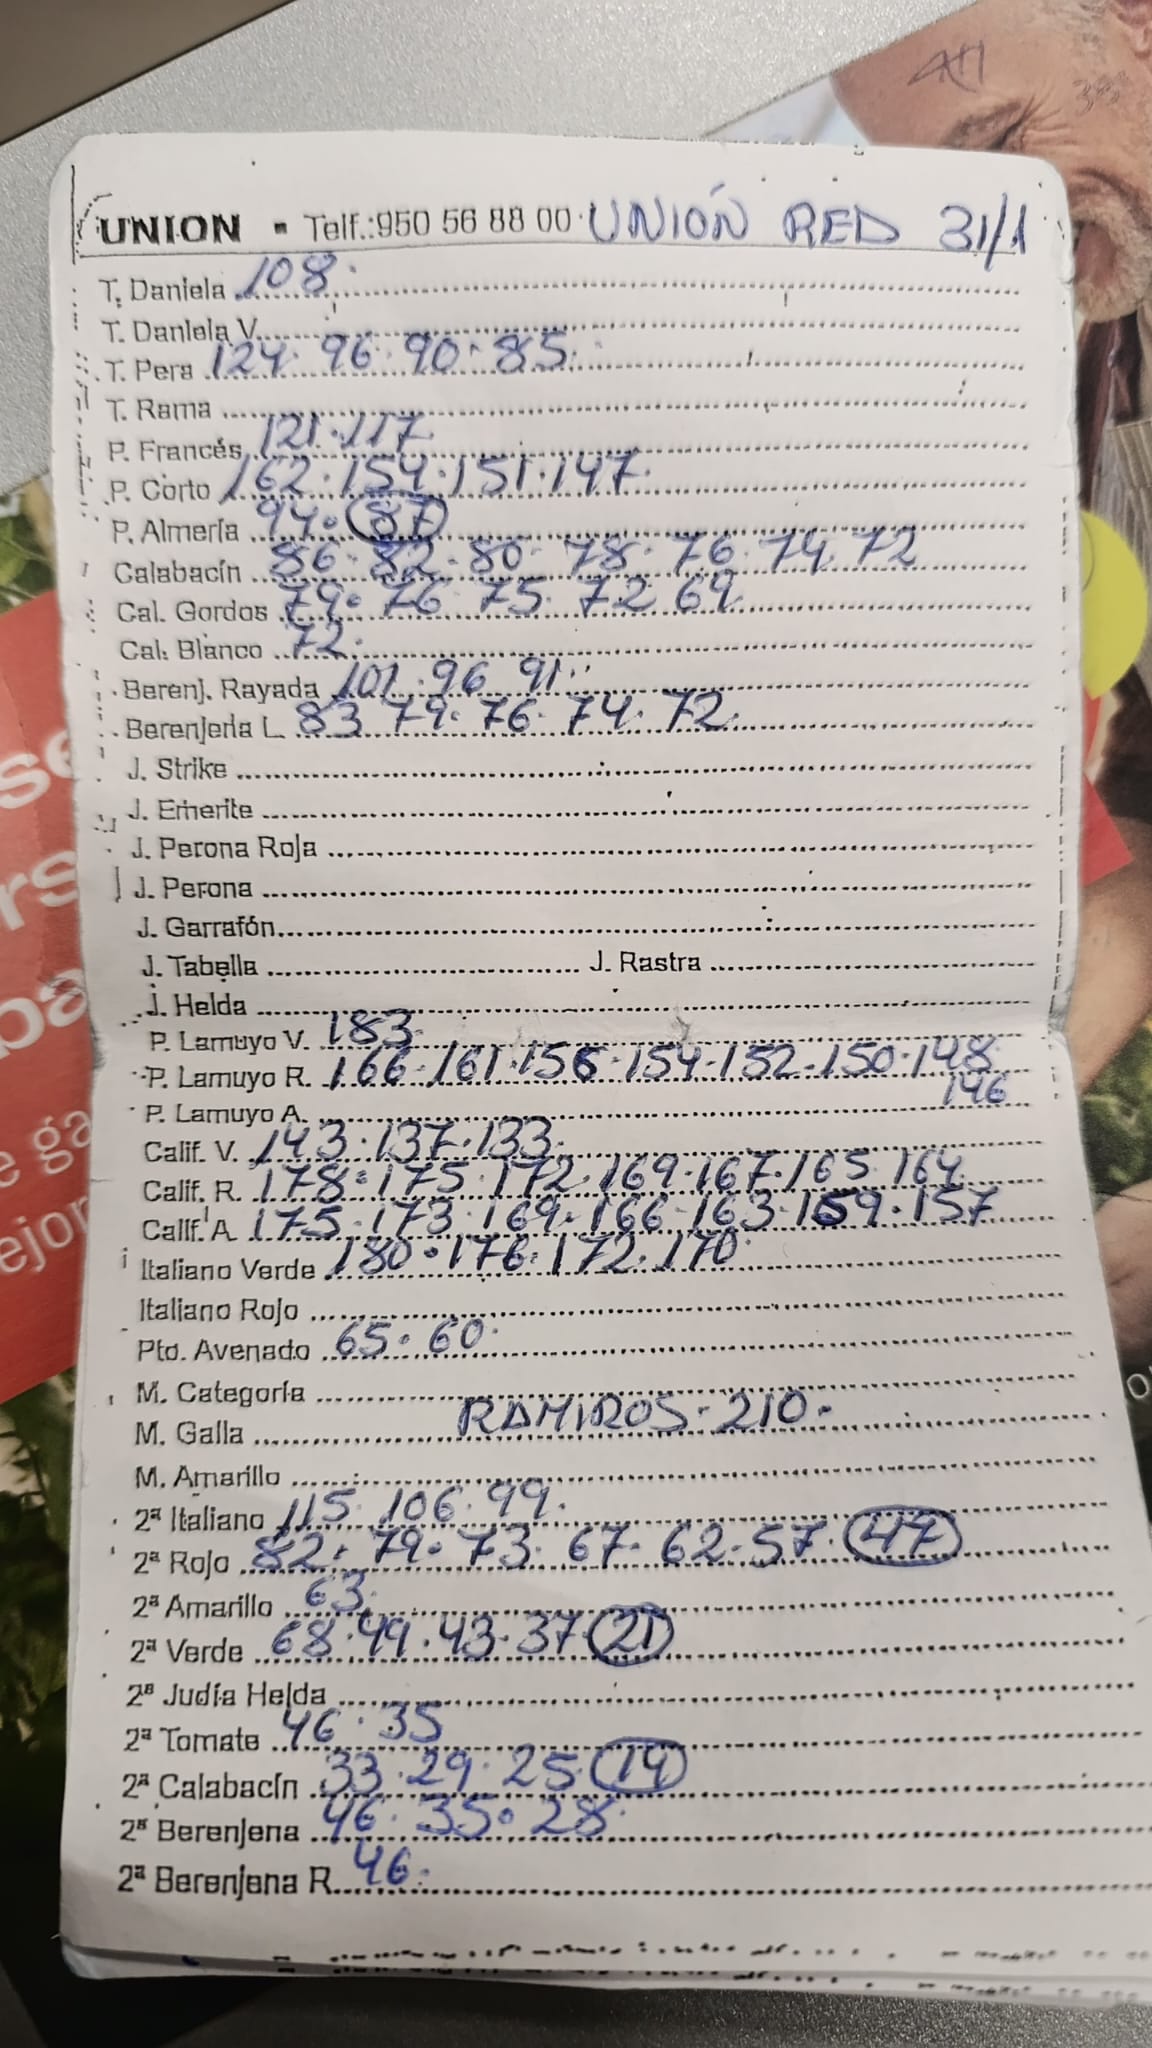 UNION - Telf.:950 56 88 00 UNIÓN RED 31/1
T. Daniela 108.
T. Daniela V.
T. Pera 124. 96. 90. 85.
T. Rama
P. Francés 121.117
P. Corto 162.154.151.147.
P. Almería 94. 87
Calabacín 86. 82. 80. 78. 76. 74. 72
Cal. Gordos 79. 76. 75. 72 69
Cal. Blanco 72.
Berenj. Rayada 101. 96 91.
Berenjena L. 83 79. 76. 74. 72
J. Strike
J. Emerite
J. Perona Roja
J. Perona
J. Garrafón
J. Tabella J. Rastra
J. Helda
P. Lamuyo V. 183.
P. Lamuyo R. 166.161.156.154.152.150.148
146
P. Lamuyo A.
Calif. V. 143.137.133.
Calif. R. 178.175.172.169.167.165.164
Calif. A. 175.173.169.166.163.159.157
Italiano Verde 180.176.172.170.
Italiano Rojo
Pto. Avenado 65. 60.
M. Categoría
M. Galla RAMIROS. 210.
M. Amarillo
2ª Italiano 115. 106. 99.
2ª Rojo 82. 79. 73. 67. 62. 57. 47
2ª Amarillo 63.
2ª Verde 68.49.43.37. 21
2ª Judía Helda
2ª Tomate 46. 35
2ª Calabacín 33.29.25. 14
2ª Berenjena 46. 35. 28.
2ª Berenjena R. 46.